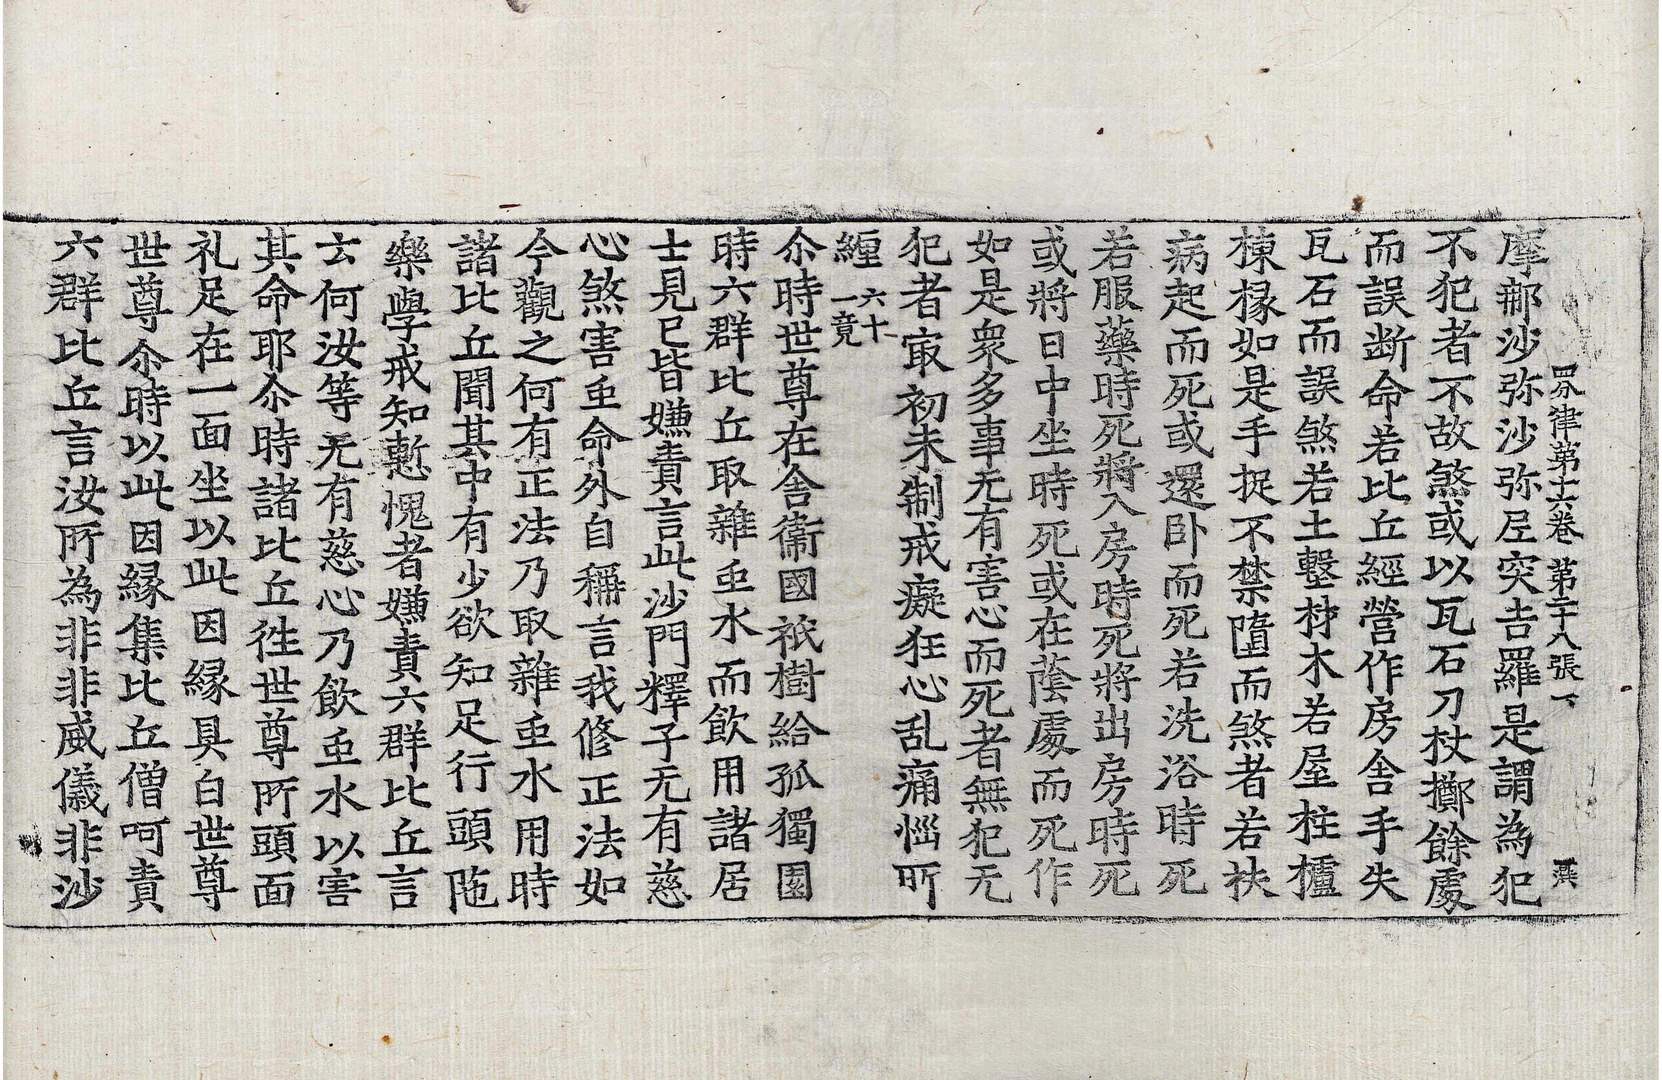 四分律第十六卷 第二十八張 下 㷼
摩郍沙弥沙弥𡰱突吉羅是謂為犯
不犯者不故煞或以瓦石刀杖擲餘處
而誤断命若比丘經營作房舍手失
瓦石而誤煞若土墼材木若屋柱櫨
棟椽如是手捉不禁墮而煞者若扶
病起而死或還卧而死若洗浴時死
若服藥時死將入房時死將出房時死
或將日中坐時死或在蔭處而死作
如是衆多事无有害心而死者無犯无
犯者㝡初未制戒癡狂心乱痛惱所
纏六十一竟
尒時世尊在舍衛國祇樹給孤獨園
時六群比丘取雜虫水而飲用諸居
士見已皆嫌責言此沙門釋子无有慈
心煞害虫命外自稱言我修正法如
今觀之何有正法乃取雜虫水用時
諸比丘聞其中有少欲知足行頭陁
樂學戒知慙愧者嫌責六群比丘言
云何汝等无有慈心乃飲虫水以害
其命耶尒時諸比丘徃世尊所頭面
礼足在一面坐以此因縁具白世尊
世尊尒時以此因縁集比丘僧呵責
六群比丘言汝所為非非威儀非沙